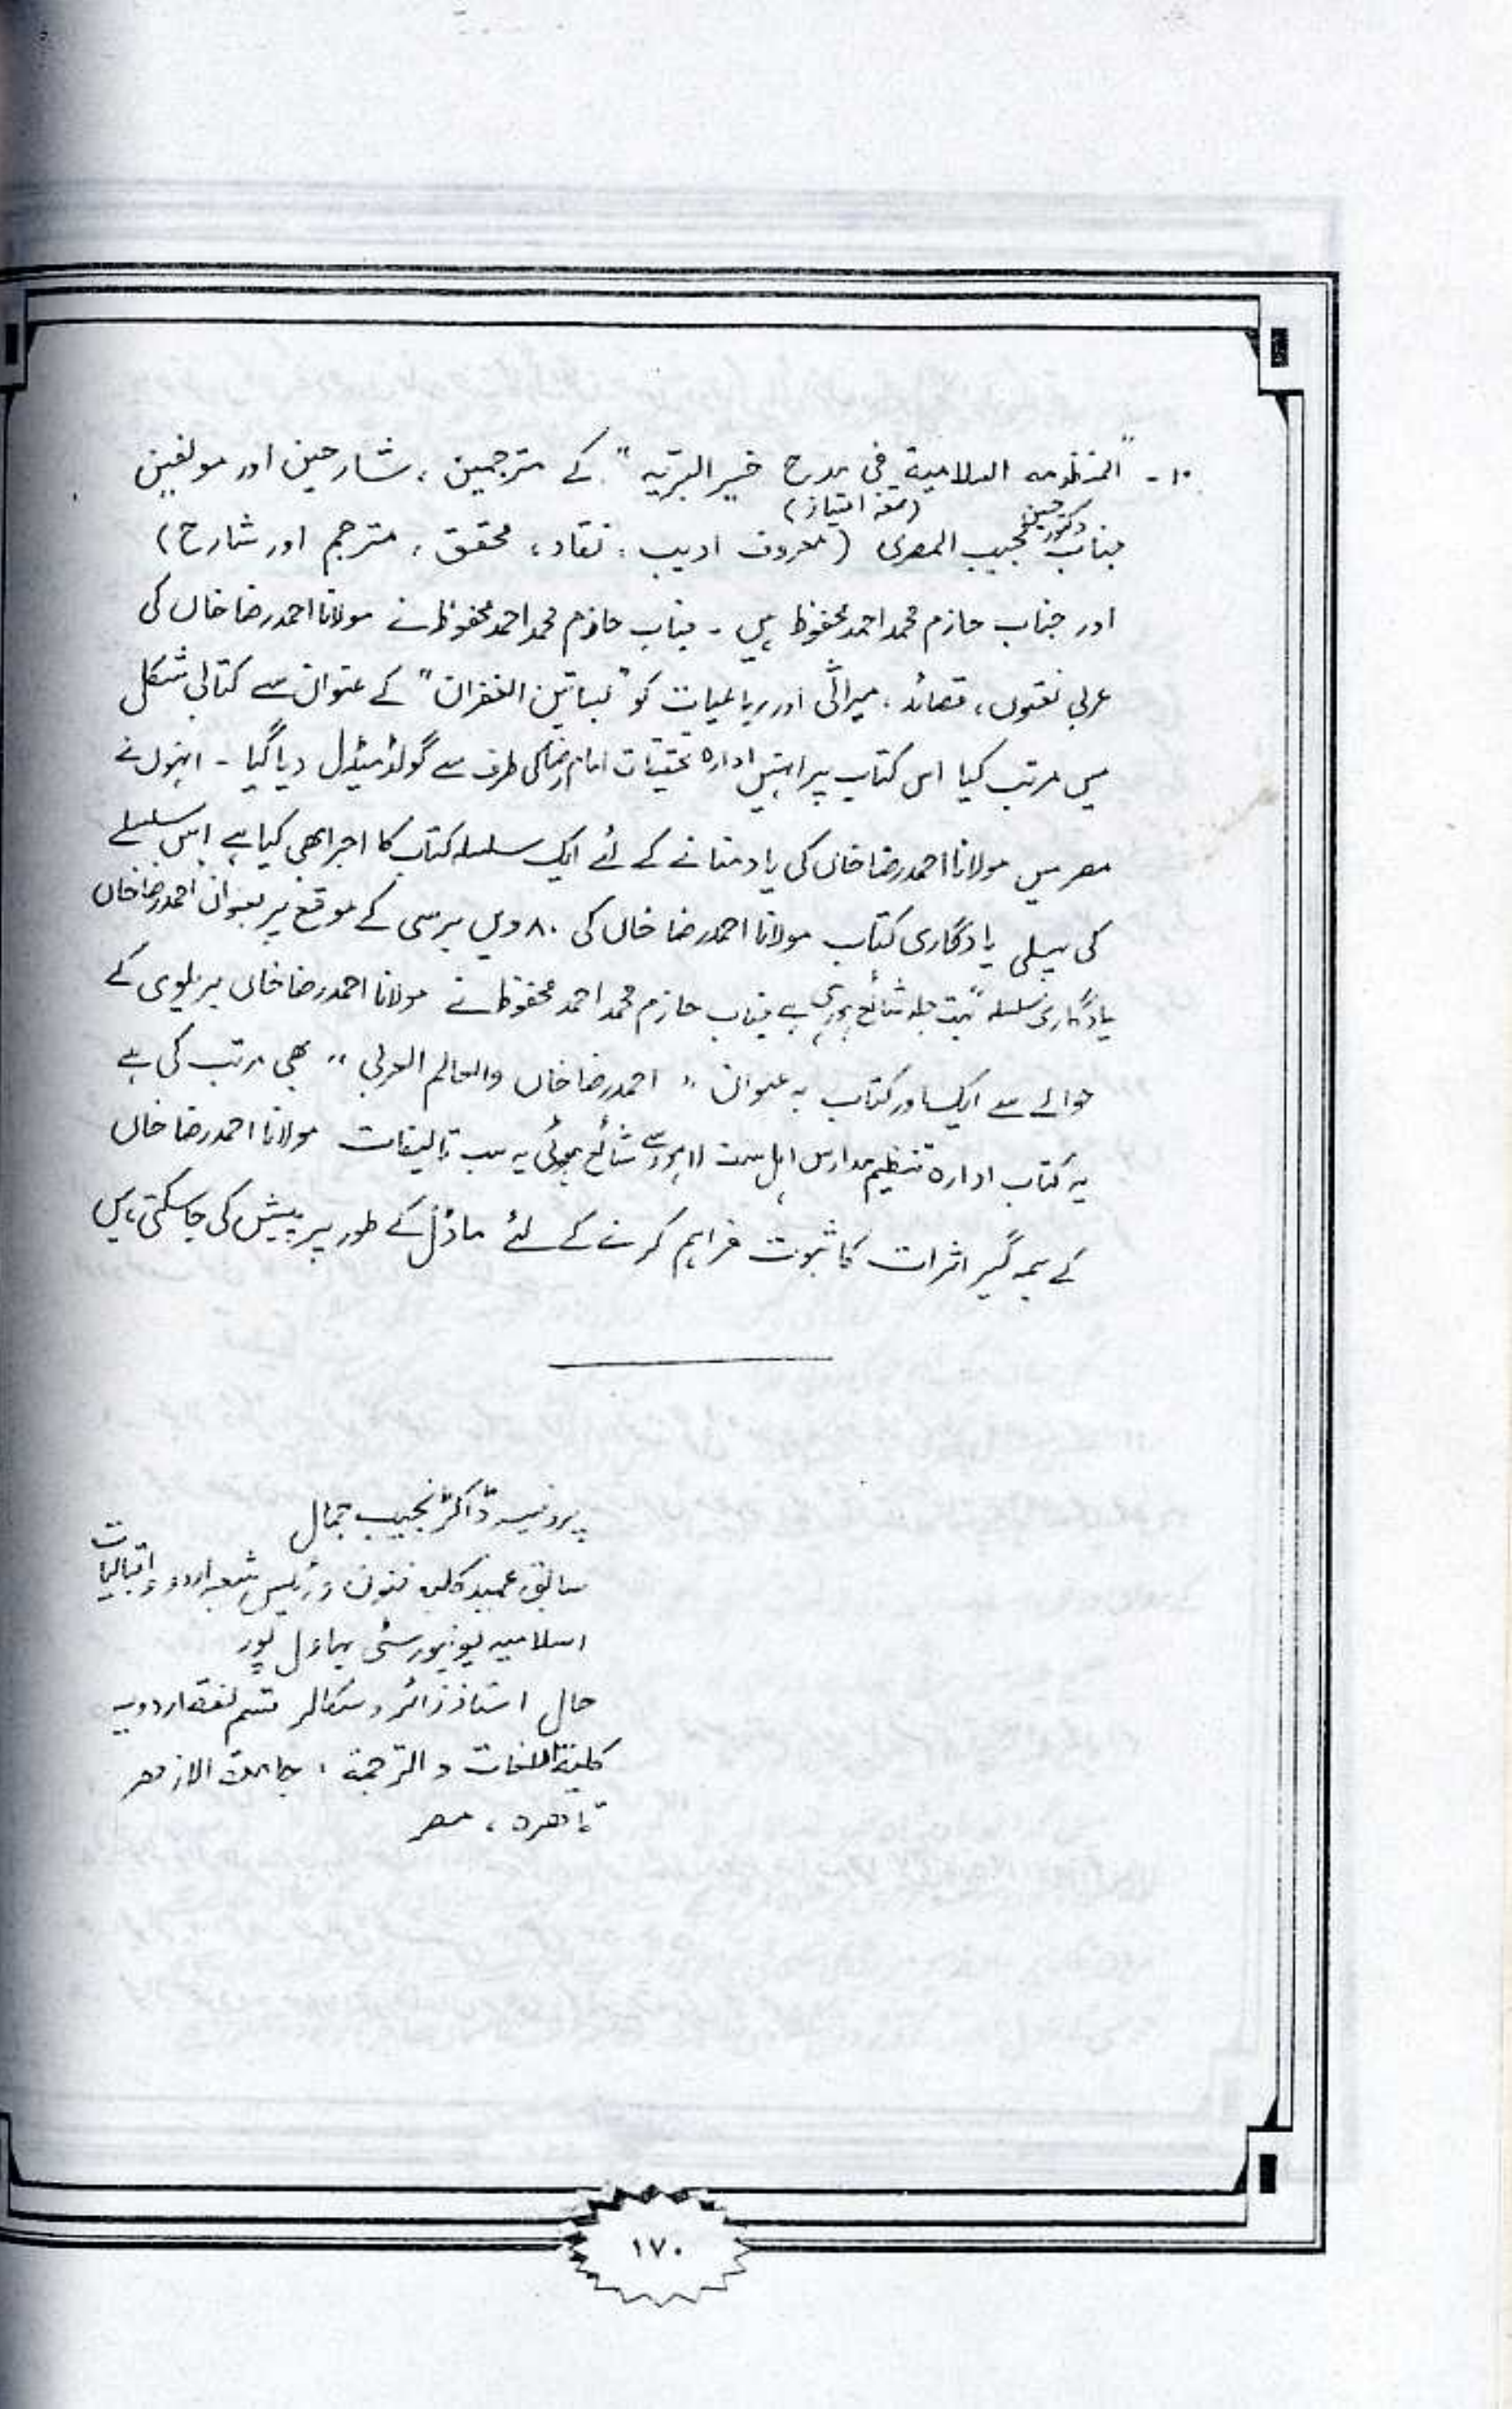 ۱۰۔ "المنظومہ السلامیۃ فی مدح خیر البریہ" کے مترجمین، شارحین اور مولفین
(تمغہ امتیاز)
جناب دکتور حسین مجیب المصری (معروف ادیب، نقاد، محقق، مترجم اور شارح)
اور جناب حازم محمد احمد محفوظ ہیں ۔ جناب حازم محمد احمد محفوظ نے مولانا احمد رضا خاں کی
عربی نعتوں، قصائد، مراثی اور رباعیات کو "بساتین الغفران" کے عنوان سے کتابی شکل
میں مرتب کیا اس کتاب پر انہیں ادارہ تحقیقات امام رضا کی طرف سے گولڈ میڈل دیا گیا ۔ انہوں نے
مصر میں مولانا احمد رضا خاں کی یاد منانے کے لئے ایک سلسلہ کتاب کا اجرا بھی کیا ہے اس سلسلے
کی پہلی یادگاری کتاب مولانا احمد رضا خاں کی ۸۰ ویں برسی کے موقع پر بعنوان احمد رضا خاں
یادگاری سلسلہ" بہت جلد شائع ہو رہی ہے جناب حازم محمد احمد محفوظ نے مولانا احمد رضا خاں بریلوی کے
حوالے سے ایک اور کتاب بہ عنوان " احمد رضا خاں والعالم العربی " بھی مرتب کی ہے
یہ کتاب ادارہ تنظیم مدارس اہل سنت لاہور سے شائع ہوئی یہ سب تالیفات مولانا احمد رضا خاں
کے ہمہ گیر اثرات کا ثبوت فراہم کرنے کے لئے ماڈل کے طور پر پیش کی جا سکتی ہیں
پروفیسر ڈاکٹر نجیب جمال
سابق عمید کلیہ فنون و رئیس شعبہ اردو و اقبالیات
اسلامیہ یونیورسٹی بہاول پور
حال استاذ زائر و سکالر قسم لغۃ اردویہ
کلیۃ اللغات و الترجمۃ، جامعۃ الازھر
قاھرہ، مصر
۱۷۰